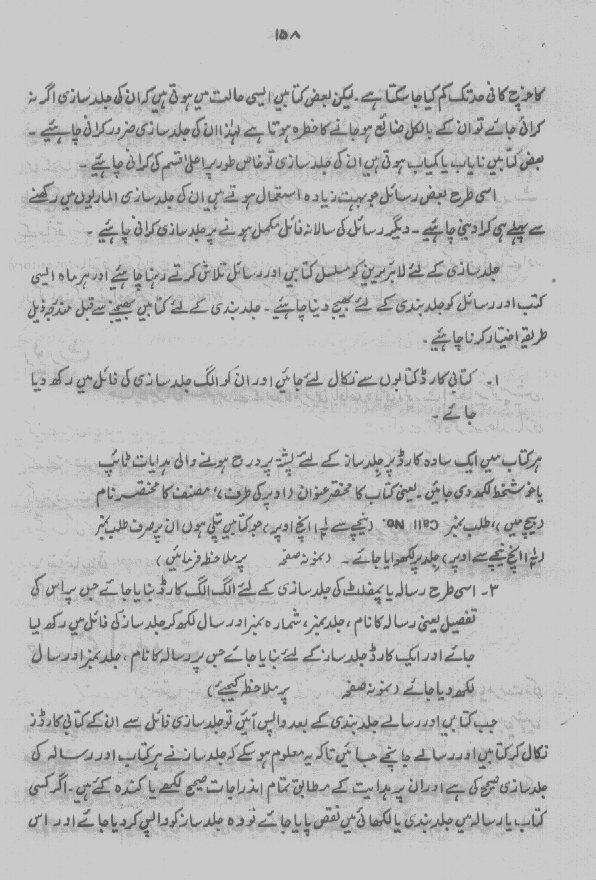 ۱۵۸
کا خرچ کافی حد تک کم کیا جا سکتا ہے۔ لیکن بعض کتابیں ایسی حالت میں ہوتی ہیں کہ ان کی جلد سازی اگر نہ
کرائی جائے تو ان کے بالکل ضائع ہو جانے کا خطرہ ہوتا ہے لہٰذا ان کی جلد سازی ضرور کرانی چاہئیے۔
بعض کتابیں نایاب یا کمیاب ہوتی ہیں ان کی جلد سازی تو خاص طور پر اعلیٰ قسم کی کرانی چاہئیے۔
اسی طرح بعض رسائل جو بہت زیادہ استعمال ہوتے ہیں ان کی جلد سازی الماریوں میں رکھنے
سے پہلے ہی کرا دینی چاہئیے۔ دیگر رسائل کی سالانہ فائل مکمل ہونے پر جلد سازی کرانی چاہئیے۔
جلد سازی کے لئے لائبریرین کو مسلسل کتابیں اور رسائل تلاش کرتے رہنا چاہئیے اور ہر ماہ ایسی
کتب اور رسائل کو جلد بندی کے لئے بھیج دینا چاہئیے۔ جلد بندی کے لئے کتابیں بھیجنے سے قبل مندرجہ ذیل
طریقہ اختیار کرنا چاہئیے۔
۱۔ کتابی کارڈ کتابوں سے نکال لئے جائیں اور ان کو الگ جلد سازی کی فائل میں رکھ دیا
جائے۔
ہر کتاب میں ایک سادہ کارڈ پر جلد ساز کے لئے پشتہ پر درج ہونے والی ہدایات ٹائپ
یا خوشخط لکھ دی جائیں۔ یعنی کتاب کا مختصر عنوان (اوپر کی طرف)، مصنف کا مختصر نام
(بیچ میں)، طلب نمبر Call No. (نیچے سے ½۱ انچ اوپر) جو کتابیں پتلی ہوں ان پر صرف طلب نمبر
(½۱ انچ نیچے سے اوپر) جلد پر لکھوایا جائے۔ (نمونہ صفحہ پر ملاحظہ فرمائیں)
۳۔ اسی طرح رسالہ یا پمفلٹ کی جلد سازی کے لئے الگ الگ کارڈ بنایا جائے جس پر اس کی
تفصیل یعنی رسالہ کا نام، جلد نمبر، شمارہ نمبر اور سال لکھ کر جلد ساز کی فائل میں رکھ لیا
جائے اور ایک کارڈ جلد ساز کے لئے بنایا جائے جس پر رسالہ کا نام، جلد نمبر اور سال
لکھ دیا جائے (نمونہ صفحہ پر ملاحظہ کیجیے)
جب کتابیں اور رسالے جلد بندی کے بعد واپس آئیں تو جلد سازی فائل سے ان کے کتابی کارڈز
نکال کر کتابیں اور رسالے جانچے جائیں تاکہ یہ معلوم ہو سکے کہ جلد ساز نے ہر کتاب اور رسالہ کی
جلد سازی صحیح کی ہے اور ان پر ہدایت کے مطابق تمام اندراجات صحیح لکھے یا کندہ کئے ہیں۔ اگر کسی
کتاب یا رسالہ میں جلد بندی یا لکھائی میں نقص پایا جائے تو وہ جلد ساز کو واپس کر دیا جائے اور اس